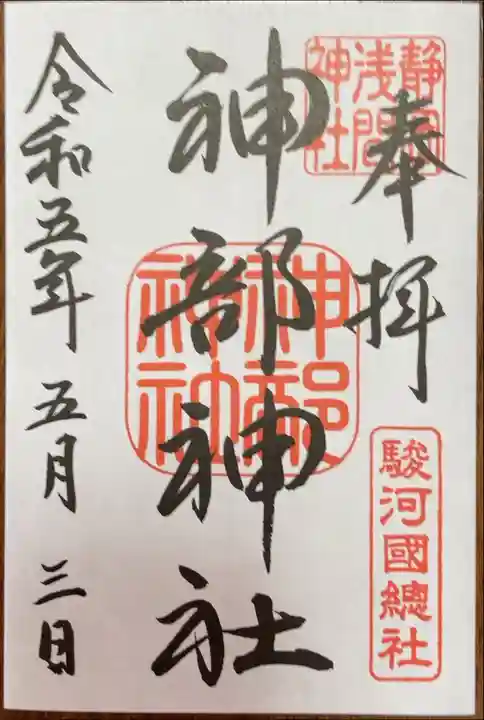 奉拝
静岡浅間神社
駿河國總社
神部神社
神部神社
令和五年 五月 三日